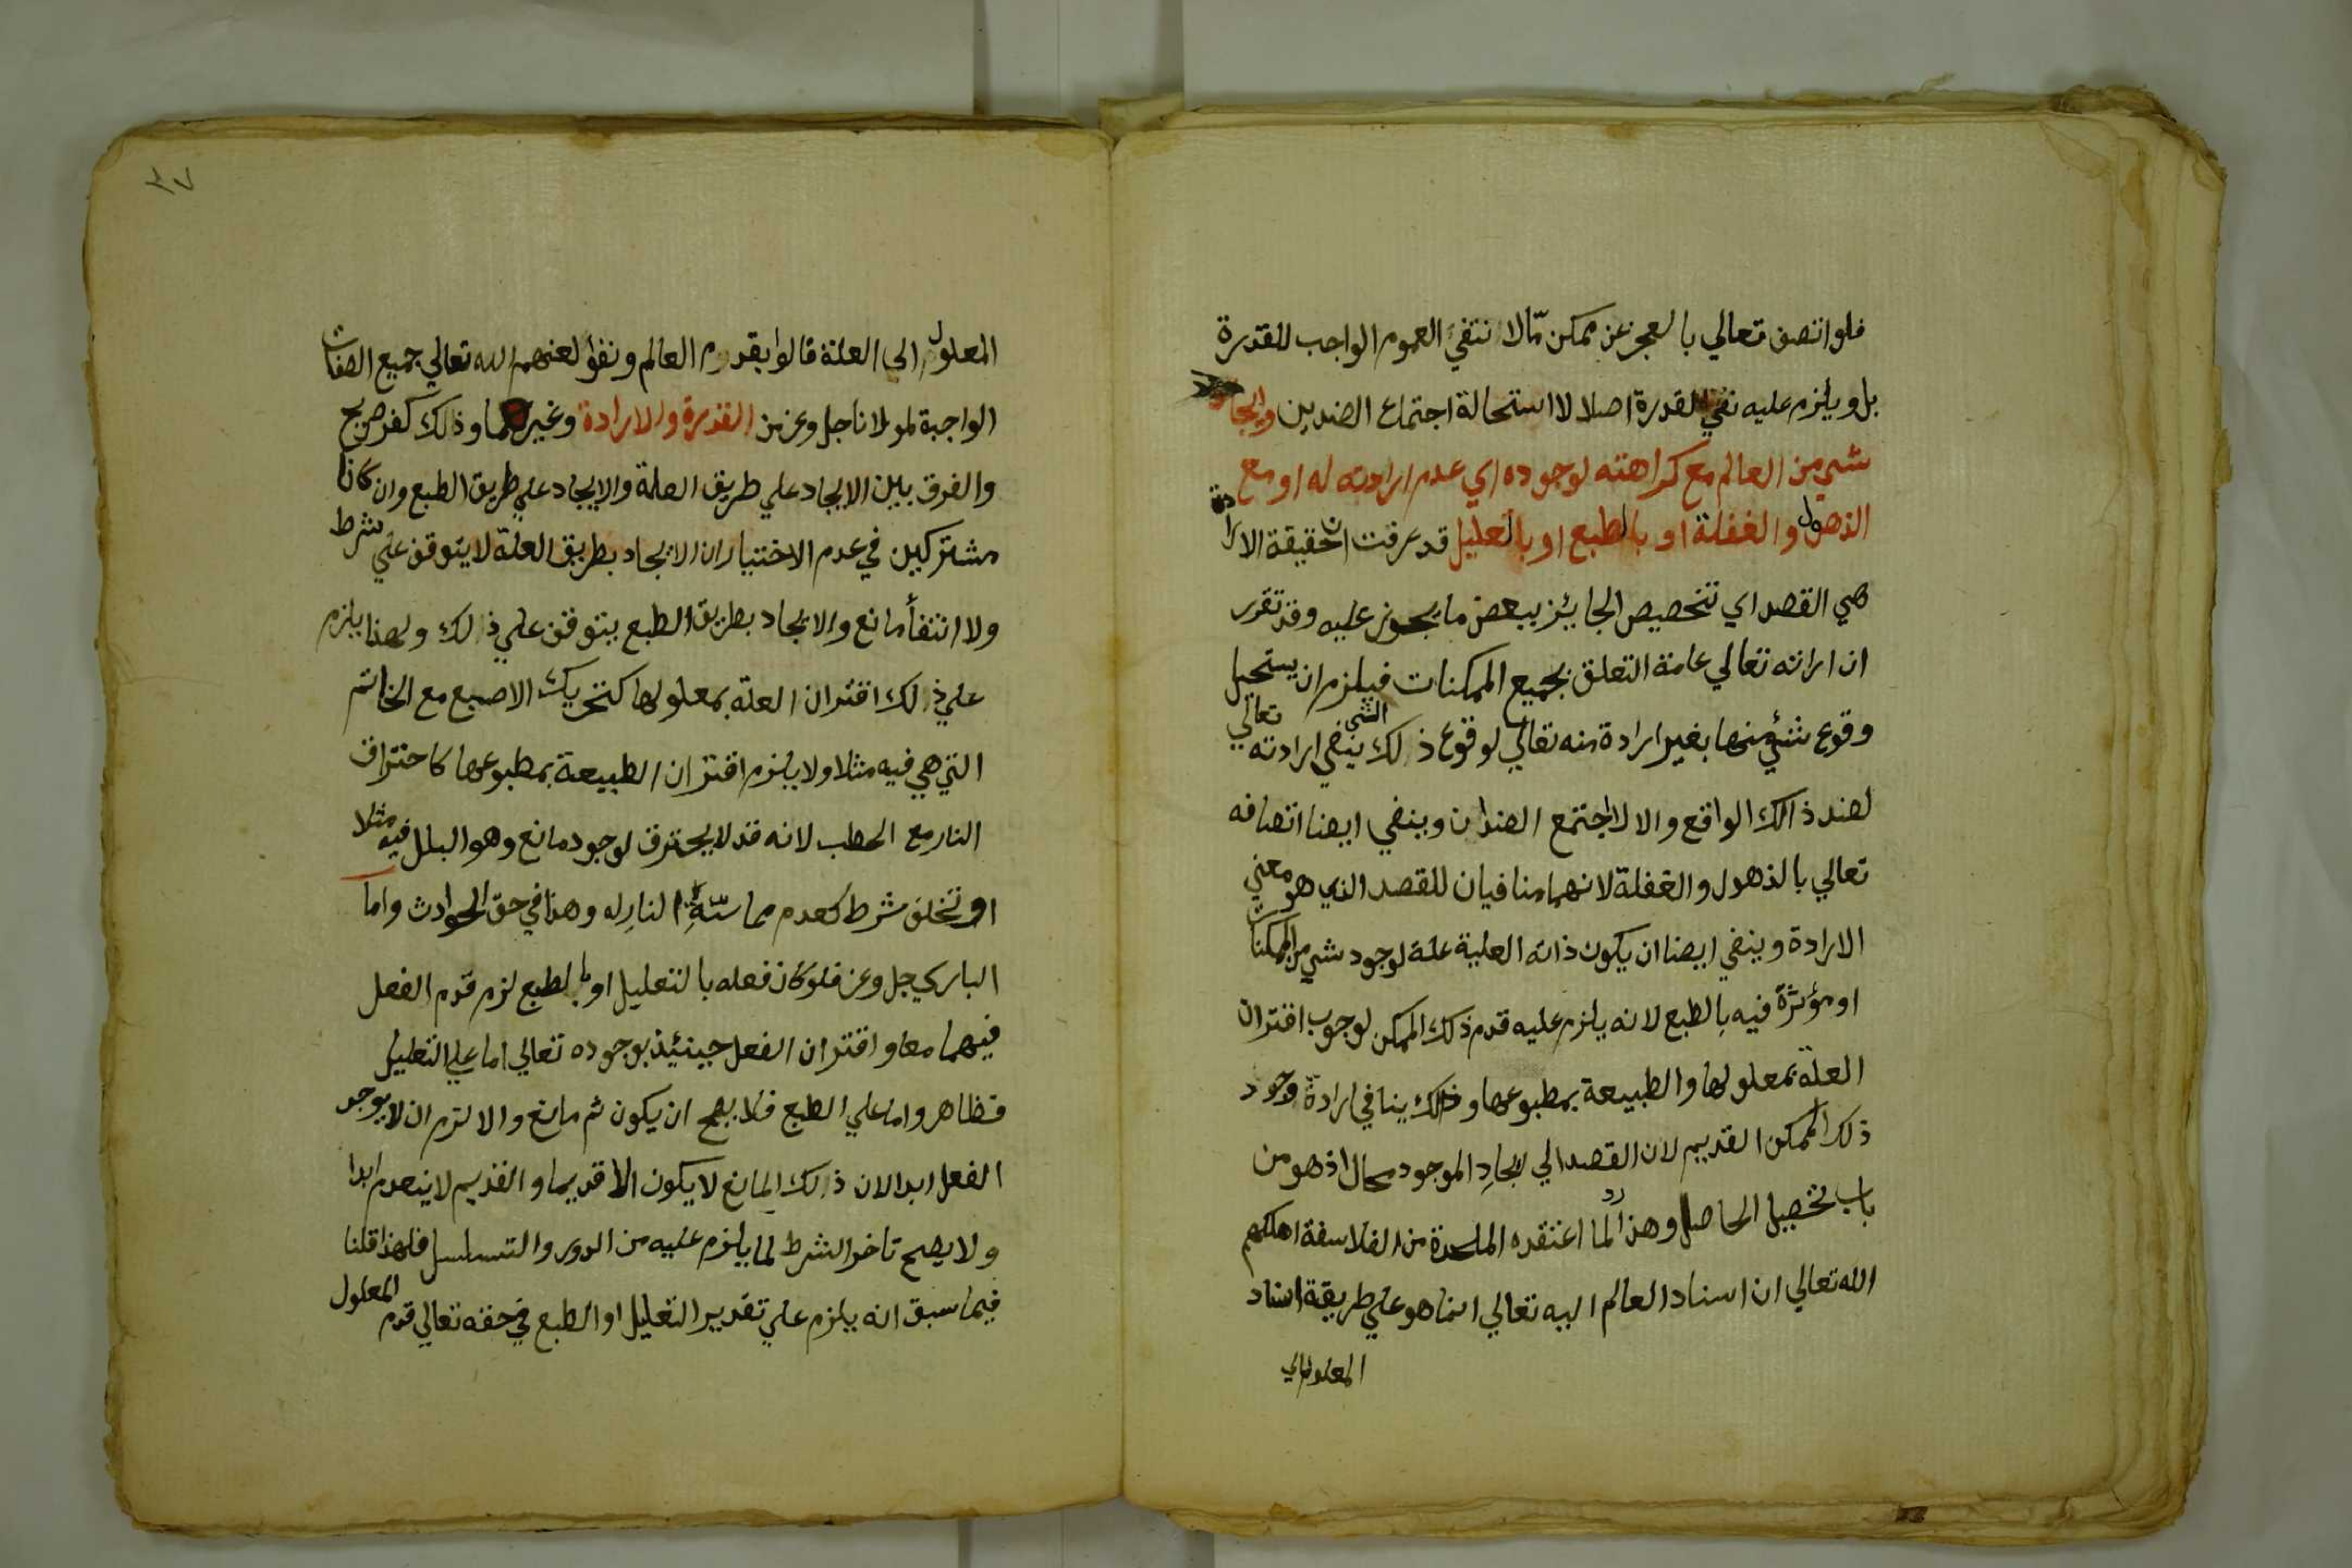 فلو اتصف تعالي بالعجز عن ممكن مّا لا نتفي العموم الواجب للقدرة
بل ويلزم عليه نفي القدرة اصلا لا استحالة اجتماع الضدين وايجاد
شي من العالم مع كراهته لوجوده اي عدم ارادته له او مع
الذهول والغفلة او بالطبع او بالتعليل قد عرفت ان حقيقة الارادة
هي القصد اي تخصيص الجائيز ببعض ما يجوز عليه وقد تقرر
ان ارادته تعالي عامة التعلق بجميع الممكنات فيلزم ان يستحيل
وقوع شئ منها بغير ارادة منه تعالي لوقوع ذلك الشي ينفي ارادته تعالي
لضد ذالك الواقع والا لاجتمع الضدان وينفي ايضا اتصافه
تعالي بالذهول والغفلة لانهما منافيان للقصد الذي هو معني
الارادة وينفي ايضا ان يكون ذاته العلية علة لوجود شي من الممكنات
او مؤثرة فيه بالطبع لانه يلزم عليه قدم ذلك الممكن لوجوب اقتران
العلة بمعلولها والطبيعة بمطبوعها وذلك ينافي ارادة وجود
ذلك الممكن القديم لان القصد الي ايجادِ الموجود محال اذ هو من
باب تحصيل الحاصل وهذا رد لما اعتقده الملحدة من الفلاسفة اهلكهم
الله تعالي ان اسناد العالم اليه تعالي انما هو علي طريقة اسناد
المعلول الي
٣٧
المعلول الي العلة قالوا بقدم العالم ونفوا لعنهم الله تعالي جميع الصفات
الواجبة لمولانا جل وعز من القدرة والارادة وغيرهما وذلك كفر صريح
والفرق بين الايجاد علي طريق العلة والايجاد علي طريق الطبع وان كانا
مشتركين في عدم الاختيار ان الايجاد بطريق العلة لا يتوقف علي شرط
ولا انتفأ مانع والايجاد بطريق الطبع يتوقف علي ذلك ولهذا يلزم
علي ذلك اقتران العلة بمعلولها كتحريك الاصبع مع الخاتم
التي هي فيه مثلا ولا يلزم اقتران الطبيعة بمطبوعها كاحتراق
النار مع الحطب لانه قد لا يحترق لوجود مانع وهو البلل فيه مثلا
او تخلف شرط كعدم مماسّةِ النارِ له وهذا في حق الحوادث واما
الباري جل وعز فلو كان فعله بالتعليل او بالطبع لزم قدم الفعل
فيهما معا واقتران الفعل حينئيذ بوجوده تعالي اما علي التعليل
فظاهر واما علي الطبع فلا يصح ان يكون ثم مانع والا لزم ان لا يوجد
الفعل ابدا لان ذلك المانع لا يكون الا قديما والقديم لا ينعدم ابدا
ولا يصح تاخر الشرط لما يلزم عليه من الدور والتسلسل فلهذا قلنا
فيما سبق انه يلزم علي تقدير التعليل او الطبع في حقه تعالي قدم المعلول